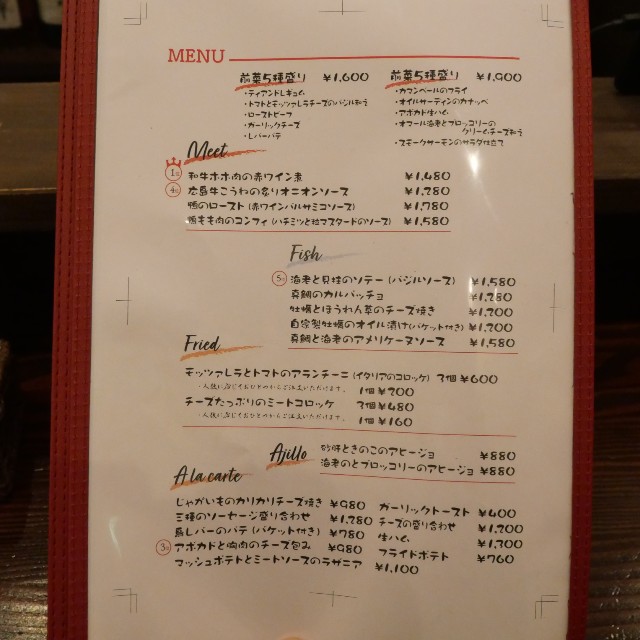 MENU
前菜5種盛り ¥1,600
・ティアンドレギュム
・トマトとモッツァレラチーズのバジル和う
・ローストビーフ
・ガーリックチーズ
・レバーパテ
前菜5種盛り ¥1,900
・カマンベールのフライ
・オイルサーディンのカナッペ
・アボカド生ハム
・オマール海老とブロッコリーの
クリームチーズ和う
・スモークサーモンのサラダ仕立て
Meet
1位 和牛ホホ肉の赤ワイン煮 ¥1,480
4位 広島牛こうねの炙りオニオンソース ¥1,280
鴨のロースト(赤ワインバルサミコソース) ¥1,780
鴨もも肉のコンフィ(ハチミツと粒マスタードのソース) ¥1,580
Fish
5位 海老と貝柱のソテー(バジルソース) ¥1,580
真鯛のカルパッチョ ¥1,280
牡蠣とほうれん草のチーズ焼き ¥1,200
自家製牡蠣のオイル漬け(バケット付き) ¥1,200
真鯛と海老のアメリケーヌソース ¥1,580
Fried
モッツァレラとトマトのアランチーニ(イタリアのコロッケ) 3個 ¥600
・人数に応じておひとつからご注文いただけます。 1個 ¥200
チーズたっぷりのミートコロッケ 3個 ¥480
・人数に応じておひとつからご注文いただけます。 1個 ¥160
Ajillo
砂肝ときのこのアヒージョ ¥880
海老のとブロッコリーのアヒージョ ¥880
A la carte
じゃがいものカリカリチーズ焼き ¥980
三種のソーセージ盛り合わせ ¥1,280
鳥レバーのパテ(バケット付き) ¥780
3位 アボカドと胸肉のチーズ包み ¥980
マッシュポテトとミートソースのラザニア ¥1,100
ガーリックトースト ¥400
チーズの盛り合わせ ¥1,200
生ハム ¥1,300
フライドポテト ¥760